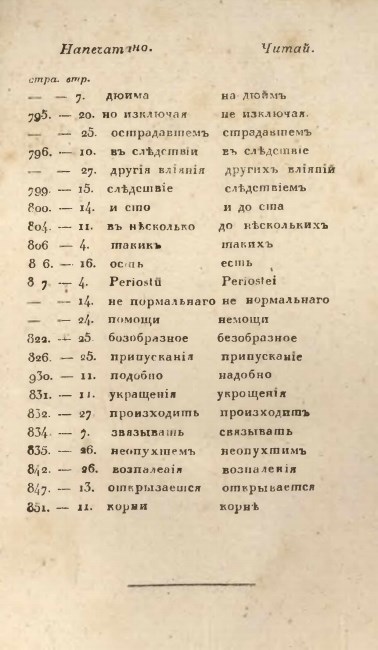 Напечатано. Читай.
стра. втр.
— — 7. дюйма на дюймъ
795. — 20. но изключая не изключая.
— — 25. острадавшемъ страдавшемъ
796. — 10. въ слѣдствіи въ слѣдствіе
— — 27. другія вліянія другихъ вліяній
799. — 15. слѣдствіе слѣдствіемъ
800. — 14. и сто и до ста
804. — 11. въ нѣсколько до нѣсколькихъ
806 — 4. такикъ такихъ
8 6. — 16. ось есть
8 7. — 4. Periostii Periostei
— — 14. не пормальнаго не нормальнаго
— — 24. помощи немощи
822. — 25. бозобразное безобразное
826. — 25. припусканія припусканіе
930. — 11. подобно надобно
831. — 11. укращенія укрощенія
832. — 27. произходить производитъ
834. — 7. звязывать связывать
835. — 26. неопухшемъ неопухшимъ
842. — 26. возпалеаія возпаленія
847. — 13. открызается открывается
851. — 11. корни корнѣ